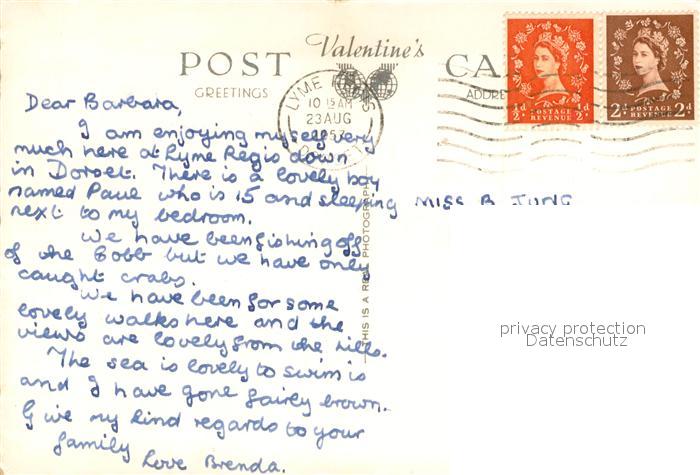 Valentine's
POST CA
GREETINGS ADDRE
LYME
10 15 AM
23 AUG
½d POSTAGE REVENUE ½d
2d POSTAGE REVENUE 2d
Dear Barbara,
I am enjoying myself very
much here at Lyme Regis down
in Dorset. There is a lovely boy
named Paul who is 15 and sleeping
next to my bedroom.
We have been fishing off
of the Cobb but we have only
caught crabs.
We have been for some
lovely walks here and the
views are lovely from the hills.
The sea is lovely to swim is
and I have gone fairly brown.
Give my kind regards to your
family
Love Brenda.
THIS IS A REAL PHOTOGRAPH
MISS B JUNG
privacy protection
Datenschutz